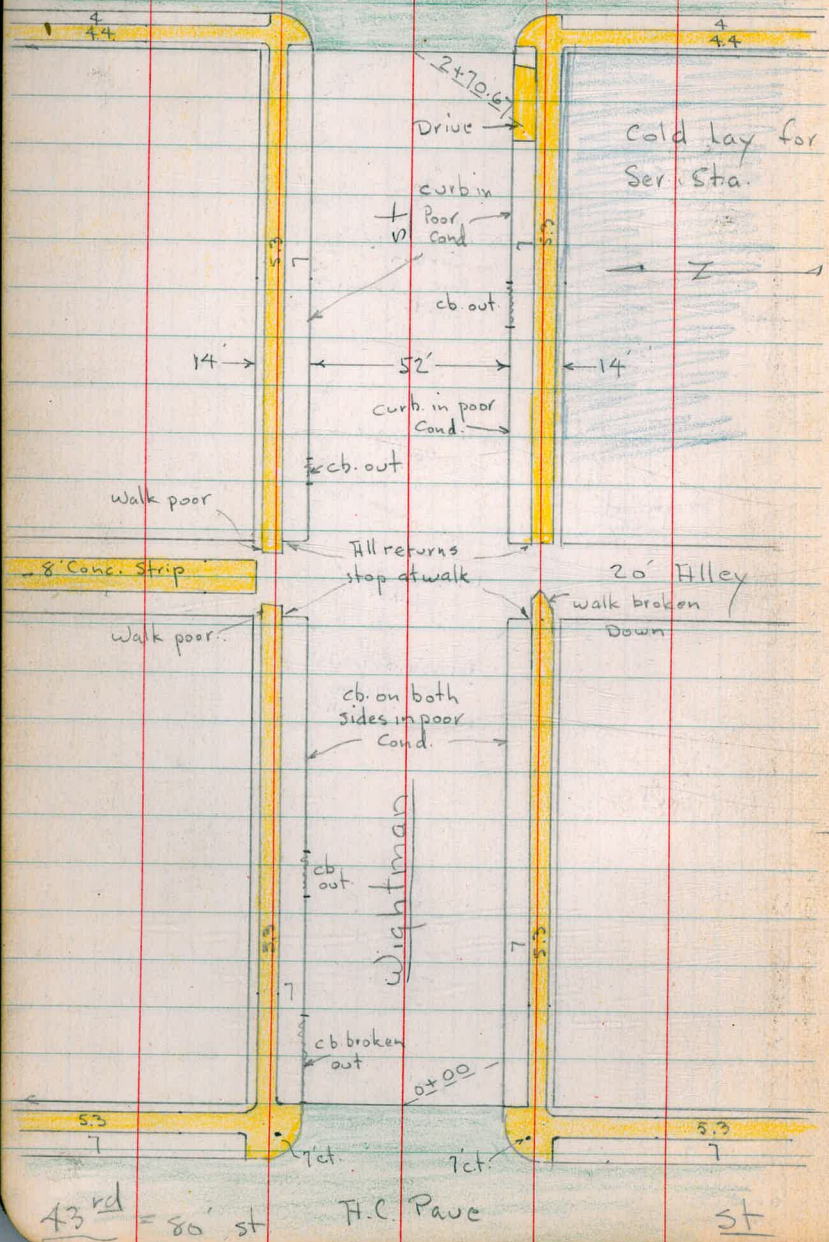 4
4.4
4
4.4
2+70.67
Drive
Cold Lay for
Ser. Sta.
curb in
Poor
Cond
St
5.3
7
7
5.3
N
cb. out
14'
52'
14'
Curb. in poor
Cond.
cb. out
Walk poor
All returns
stop at walk
8' Conc. Strip
20' Alley
walk broken
Down
Walk poor
cb. on both
sides in poor
Cond.
Wightman
cb
out
5.3
7
7
5.3
cb broken
out
0+00
5.3
7
5.3
7
7'ct.
7'ct.
43rd = 80' st
A.C. Pave
st